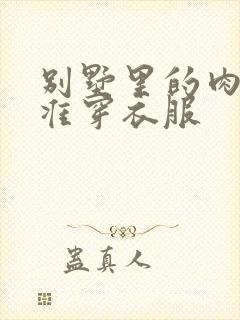 别墅里的肉
准穿衣服
蛊真人